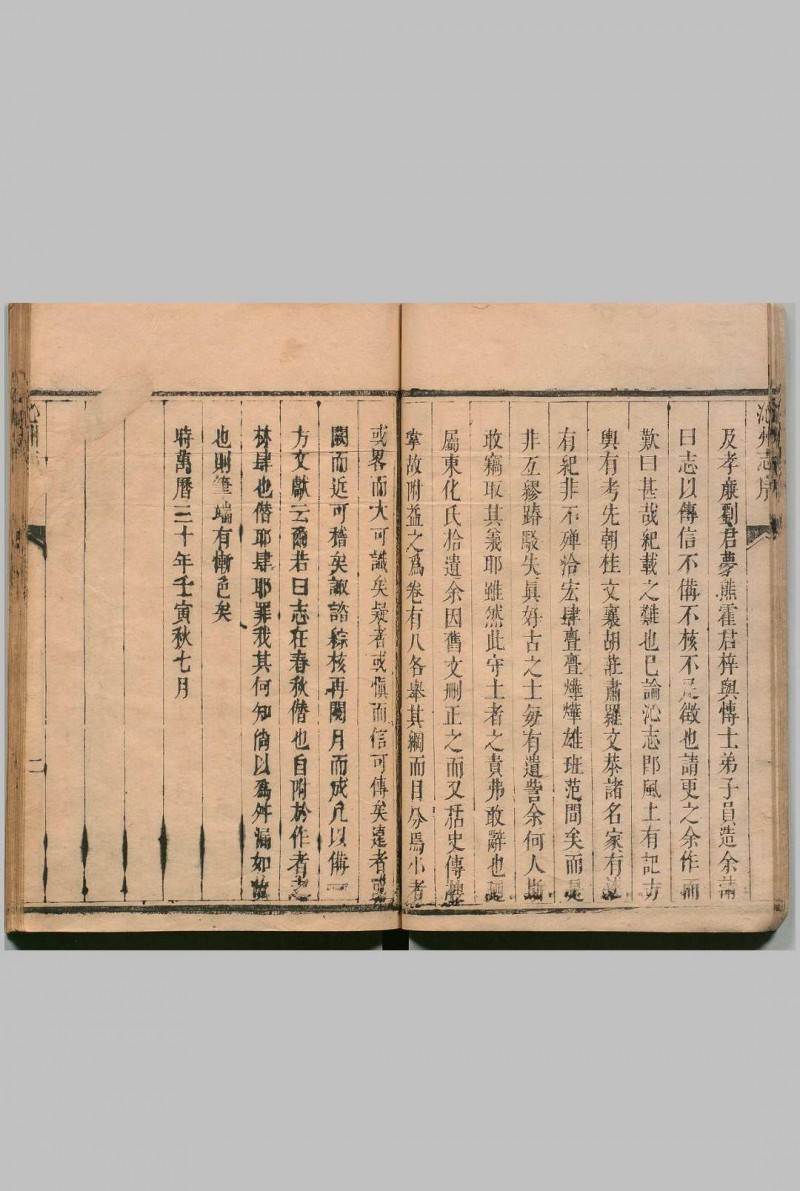 沁州志序
及孝廉劉君夢熊霍君梓與博士弟子員造余請
曰志以傳信不備不核不足徵也請更之余作而
歎曰甚哉紀載之難也已論沁志即風土有記方
輿有考先朝桂文襄胡莊肅羅文恭諸名家有
有紀非不殫洽宏肆亹亹燁燁雄班范間矣而是
非互繆踳駁失真好古之士每有遺訾余何人斯
敢竊取其義耶雖然此守土者之責弗敢辭也
屬東化氏拾遺余因舊文刪正之而又括史傳
寧故附益之為卷有八各舉其綱而目分焉小者
或畧而大可識矣疑者或慎而信可傳矣遠者或
闕而近可稽矣諏諮綜核再閱月而成凡以備一
方文獻云爾若曰志在春秋僭也自附於作者之
林肆也僭耶肆耶罪我其何知倘以為舛漏如故
也則筆端有慚色矣
時萬曆三十年壬寅秋七月
沁州
二